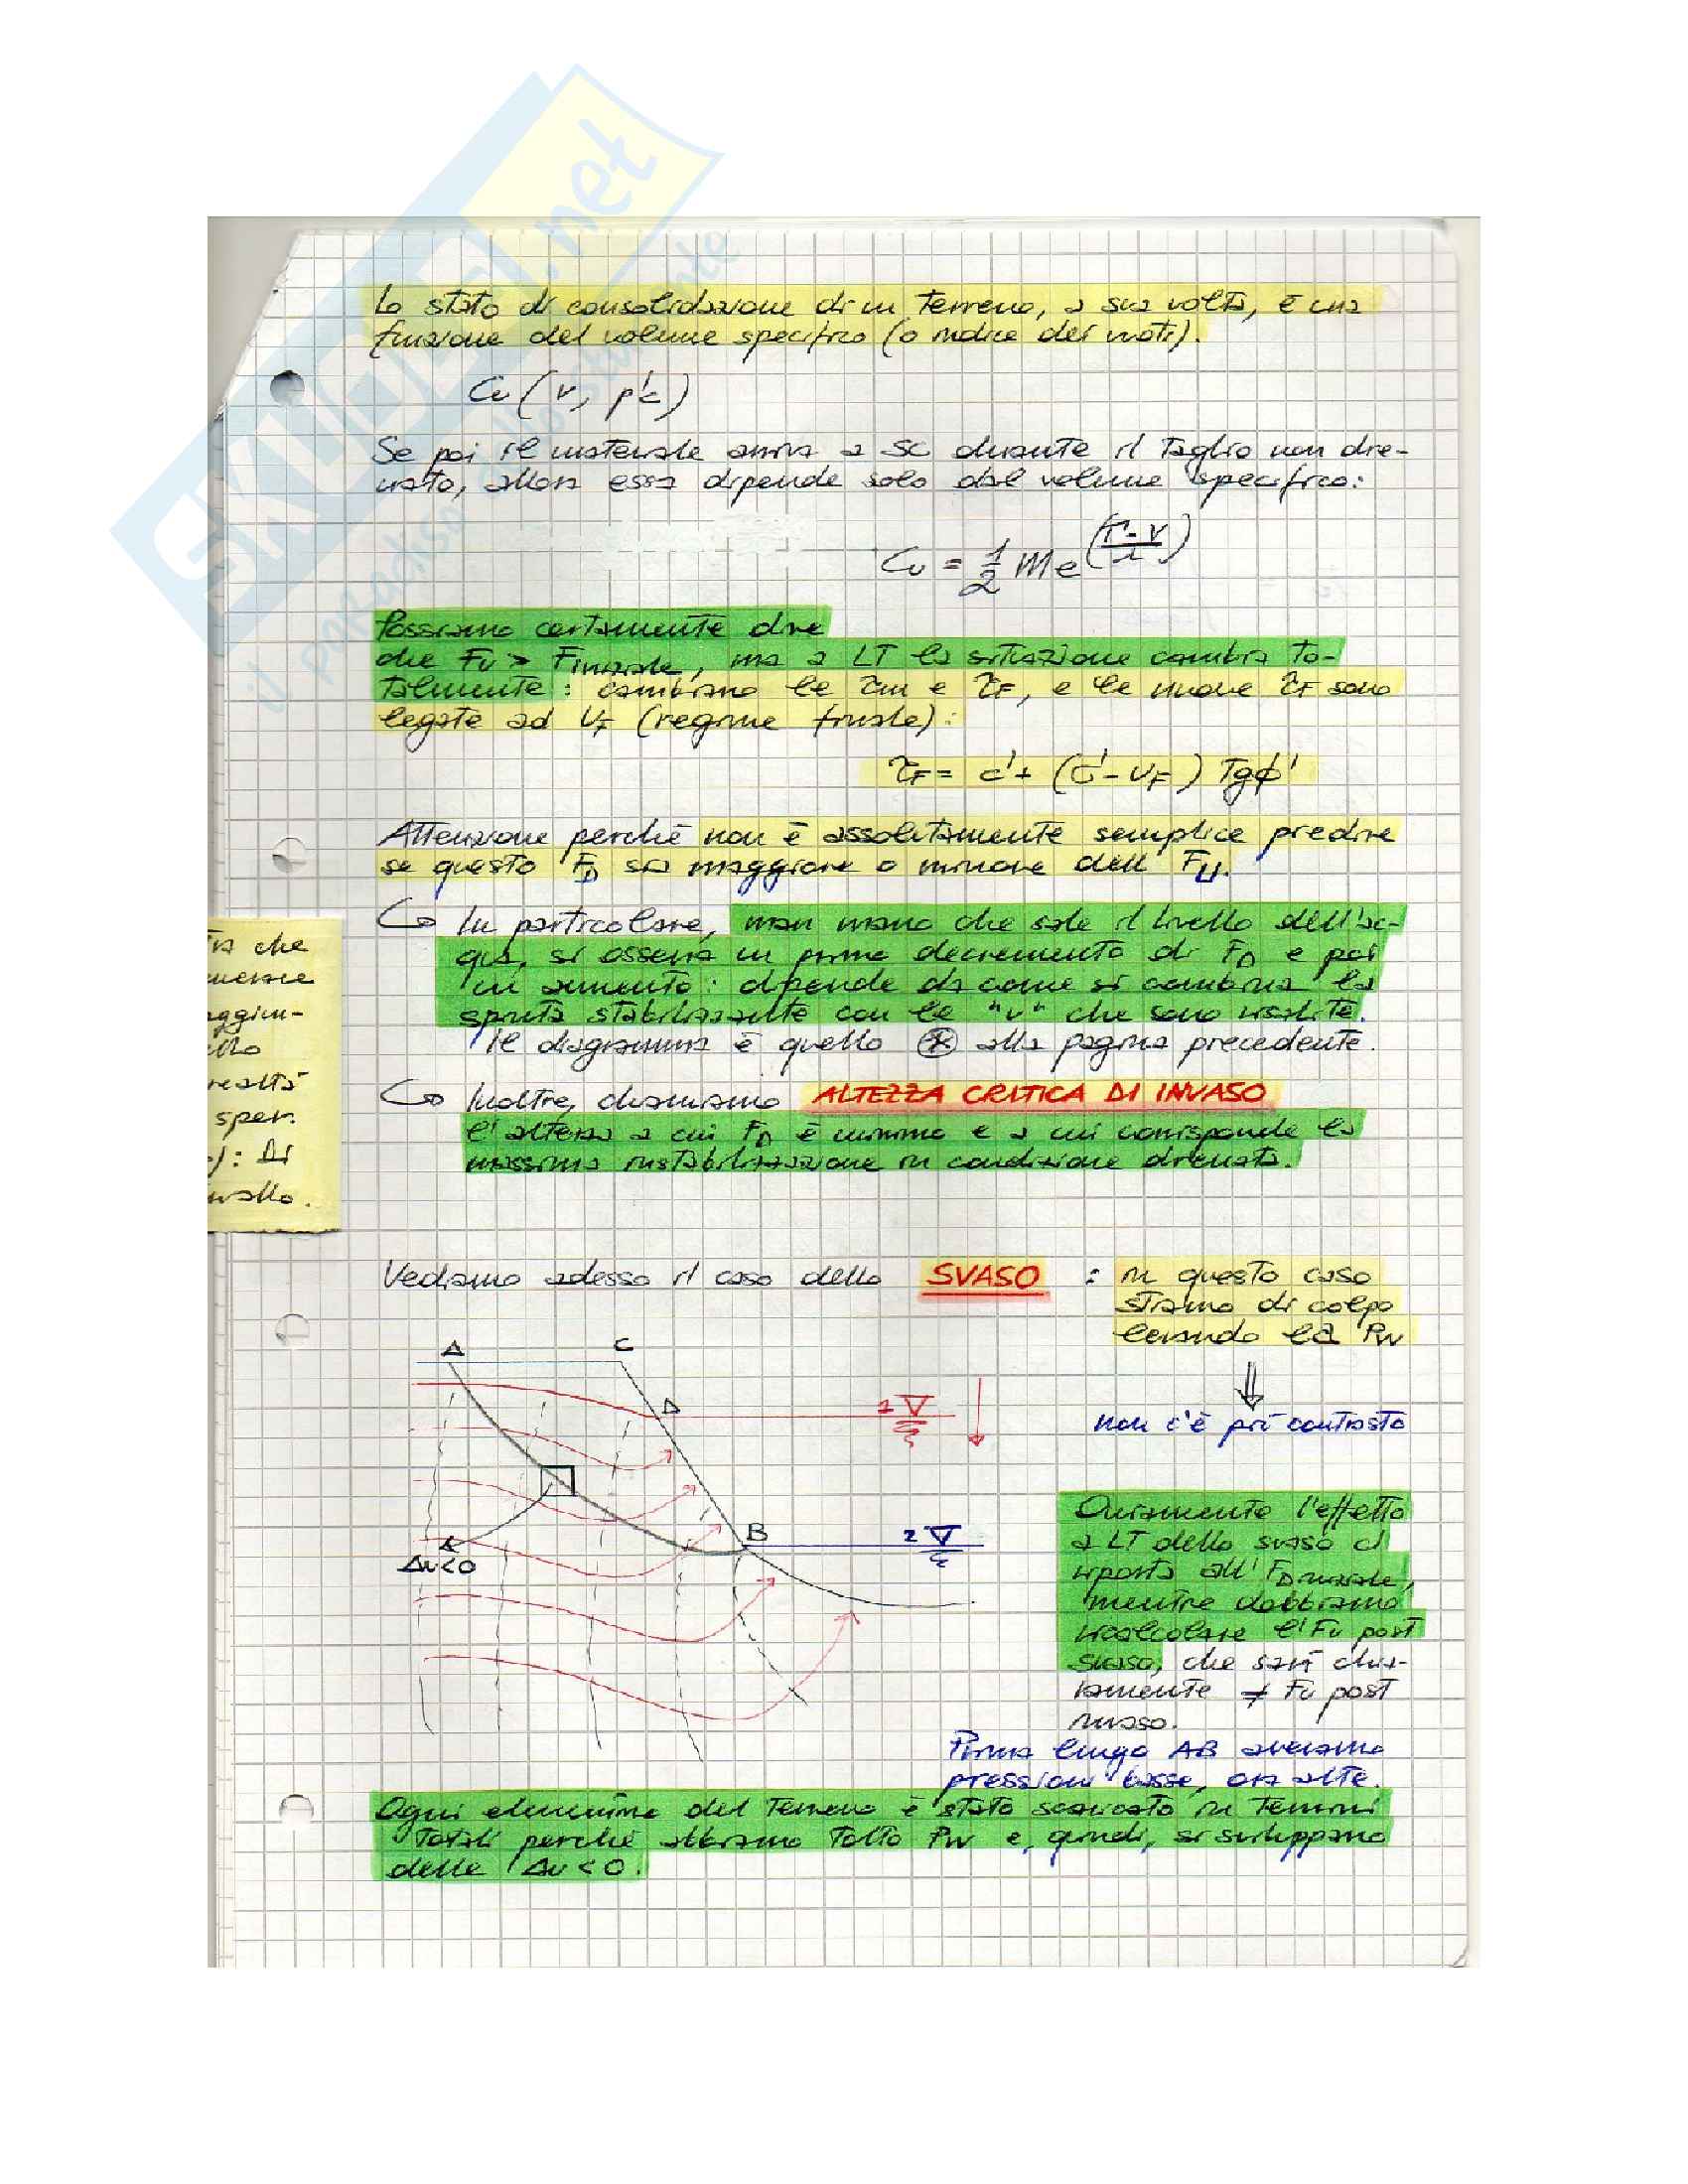 SKUOLA.net
il paradiso dello studente
Lo stato di consolidazione di un terreno, a sua volta, è una
funzione del volume specifico (o indice dei vuoti).
Cu (v, p'c)
Se poi il materiale arriva a SC durante il taglio non dre-
nato, allora essa dipende solo dal volume specifico:
Cu = 1/2 M e^((Γ-v)/λ)
Possiamo certamente dire
che Fu > Finiziale, ma a LT la situazione cambia to-
talmente: cambiano le τm e τF, e le nuove τF sono
legate ad UF (regime finale):
τF = c' + (σ' - UF) Tgϕ'
Attenzione perchè non è assolutamente semplice predire
se questo FD sia maggiore o minore dell' FU.
↪ In particolare, man mano che sale il livello dell'ac-
qua, si osserva un primo decremento di FD e poi
un aumento: dipende da come si combina la
spinta stabilizzante con le "u" che sono risalite.
Il diagramma è quello ⊛ alla pagina precedente.
↪ Inoltre, chiamiamo ALTEZZA CRITICA DI INVASO
l'altezza a cui FD è minimo e a cui corrisponde la
massima instabilizzazione in condizione drenata.
che
aggiun-
realtà
sper.
): Di
Vediamo adesso il caso dello SVASO : in questo caso
stiamo di colpo
levando la Pw
non c'è più contrasto
A
C
D
1
B
2
Δu<0
Ovviamente l'effetto
a LT dello svaso ci
riporta all' FD iniziale,
mentre dobbiamo
ricalcolare l'Fu post
svaso, che sarà chia-
ramente ≠ Fu post
invaso.
Prima lungo AB avevamo
pressioni basse, ora alte.
Ogni elementino del terreno è stato scaricato in termini
totali perchè abbiamo tolto Pw e, quindi, si sviluppano
delle Δu<0.